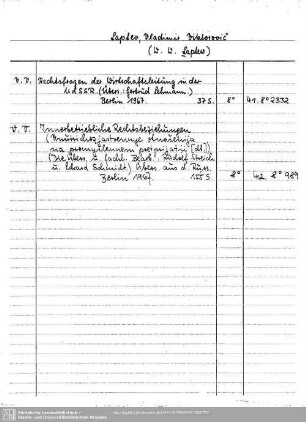 Laptev, Vladimir Viktorovič
(W. W. Laptew)
V. V. Rechtsfragen der Wirtschaftsleitung in der
UdSSR. (Übers.: Gertrud Lehmann.)
Berlin 1967. 37 S. 8° 41. 8° 2332
V. V. Innerbetriebliche Rechtsbeziehungen
(Vnutrichozjajstvennye otnošenija
na promyšlennom predprijatii [dt.])
(Die Übers. u. fachl. Bearb.: Rudolf Streich
u. Edward Schmidt) Übers. aus d. Russ.
Berlin 1967. 155 S. 8° 42. 8° 989
Sächsische Landesbibliothek –
Staats- und Universitätsbibliothek Dresden